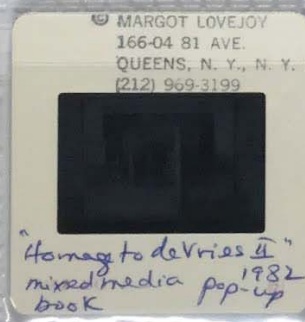 © MARGOT LOVEJOY
166-04 81 AVE.
QUEENS, N. Y., N. Y.
(212) 969-3199
"Homage to deVries II"
1982
mixed media pop-up
book